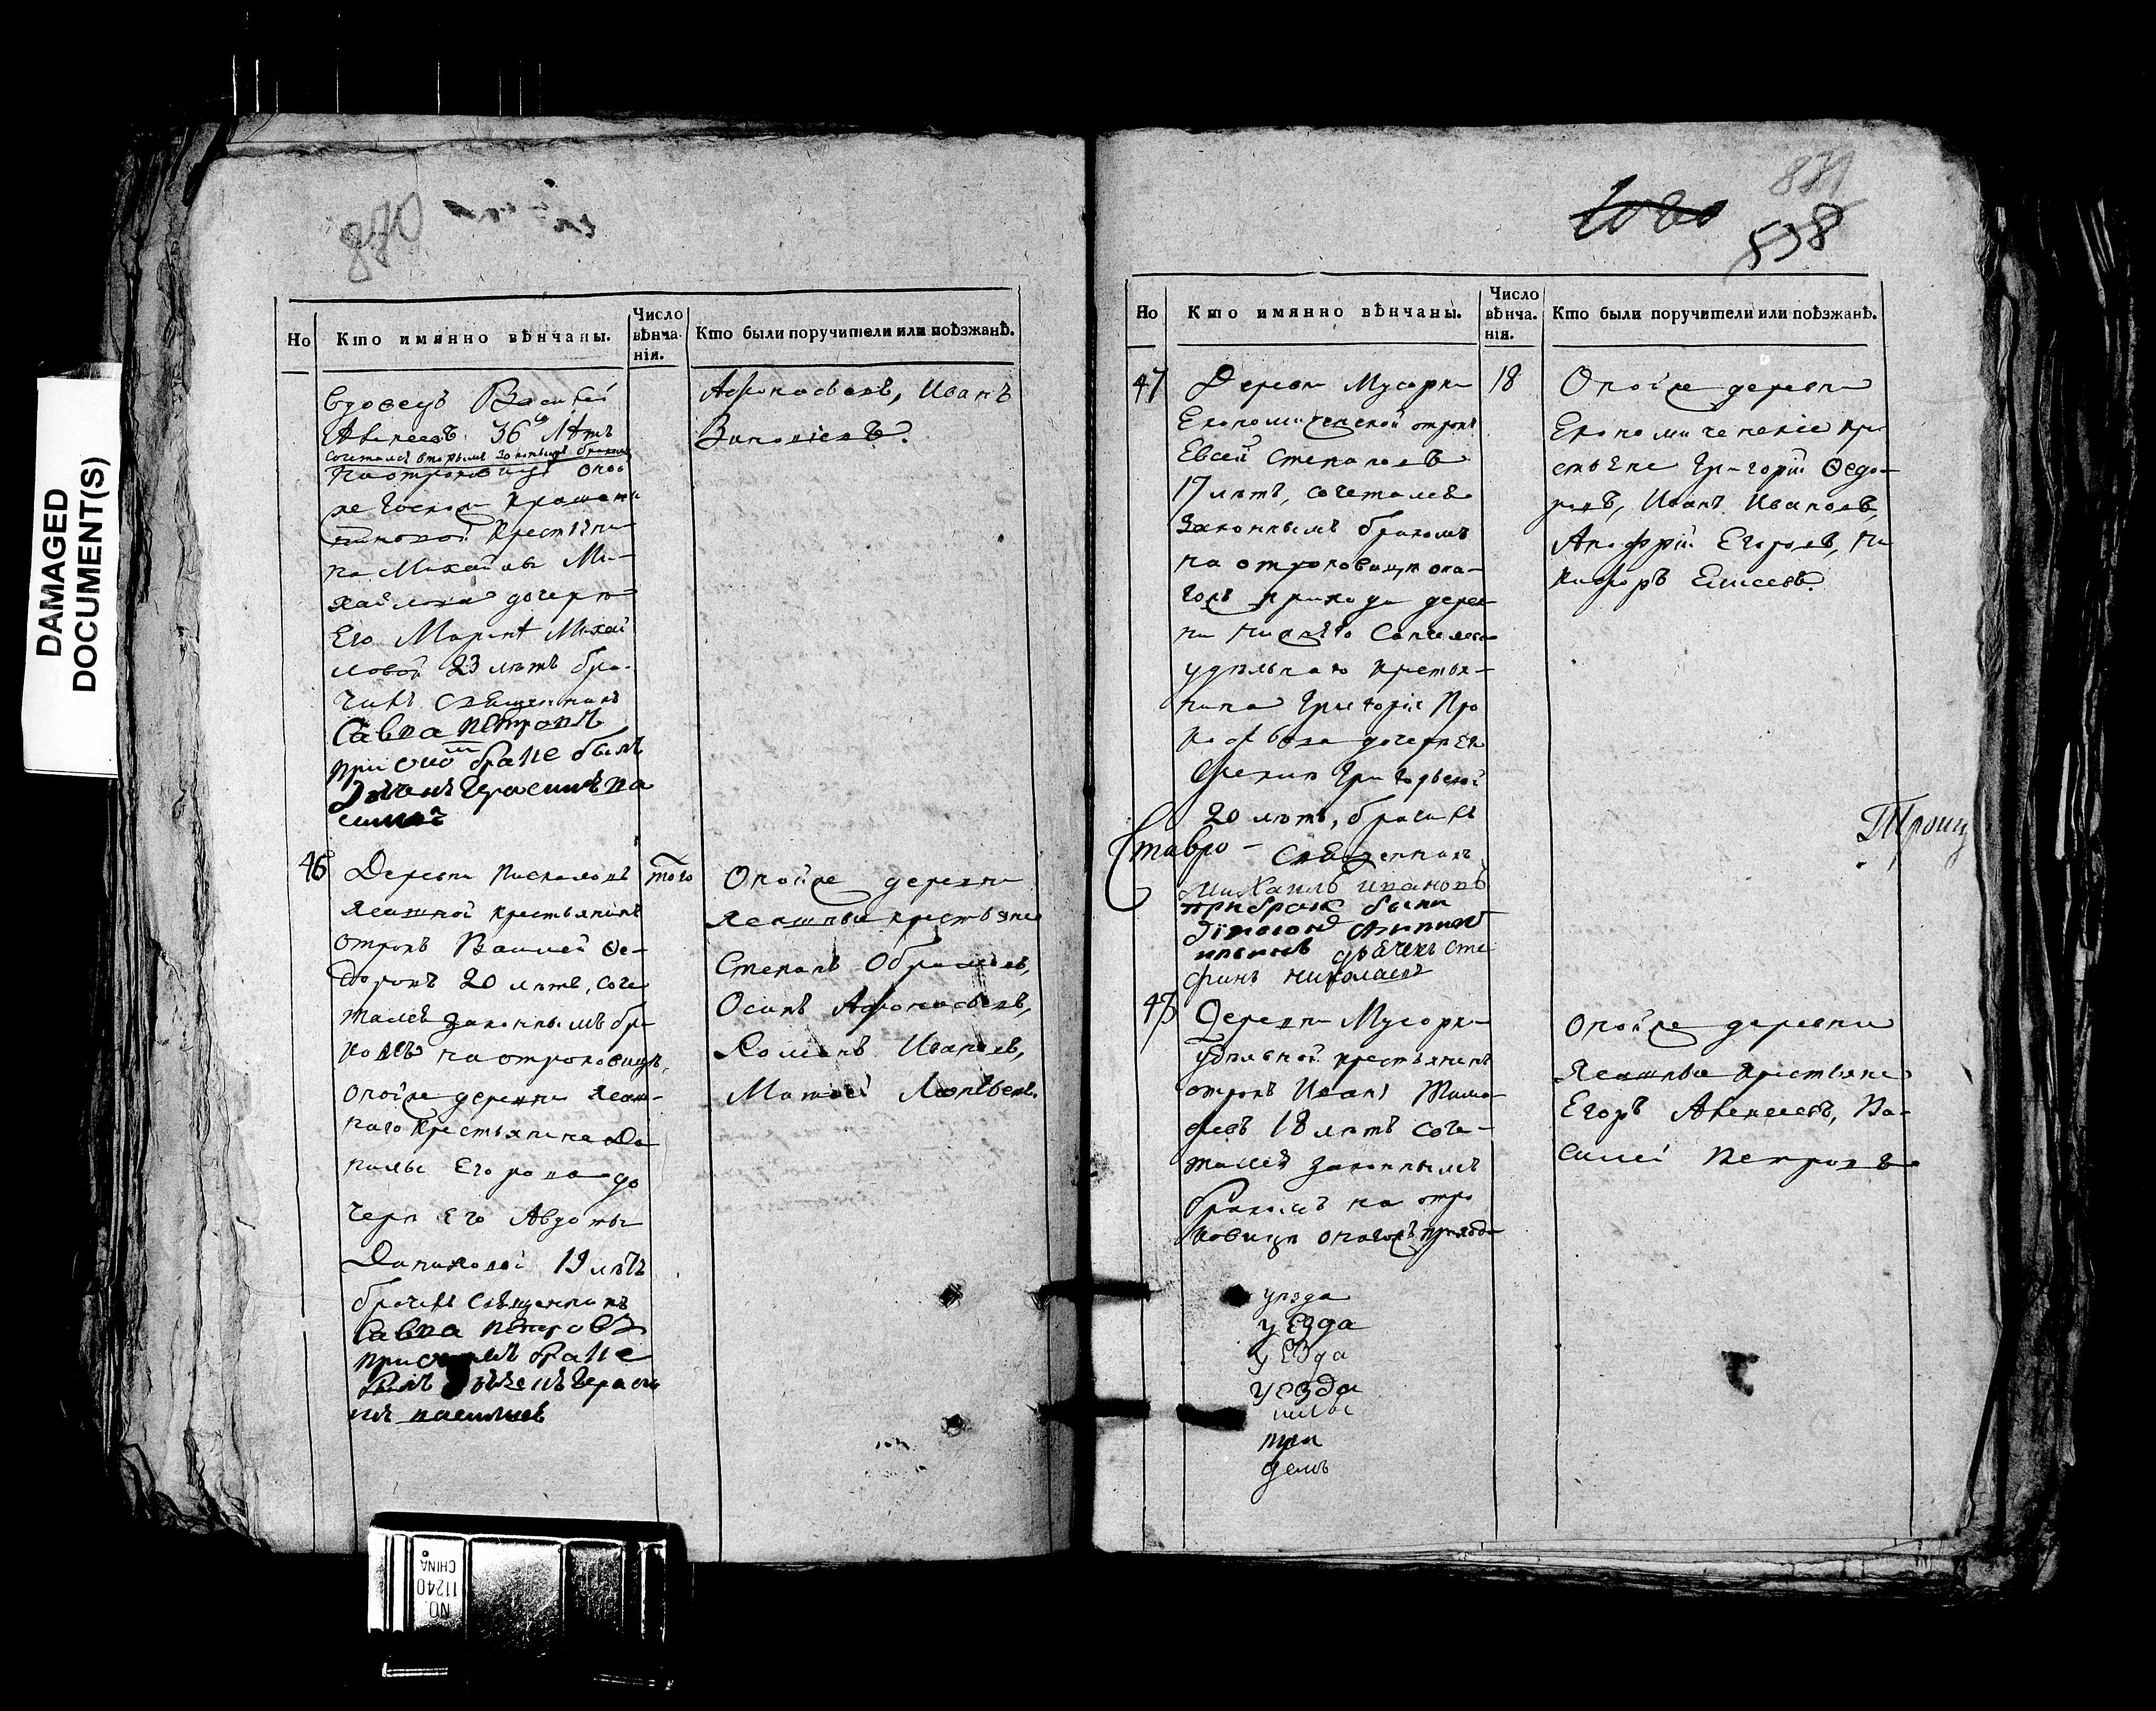 DAMAGED
DOCUMENT(S)
870
Но
Кто имянно вѣнчаны.
Число
вѣнча-
нія.
Кто были поручители или поѣзжанѣ.
вдовецъ Василей
Алексеевъ 36 лѣтъ
сочетался вторымъ законнымъ бракомъ
на отроковице оной
же Госпожи
крестьяни
на Михайлы Ми-
хайлова дочерью
Его Марьѣ Михай
ловой 23 лѣтъ бра-
чилъ Священникъ
Савва петровъ
при омъ браке былъ
дьячекъ Герасимъ ва
силиевъ
Афонасьевъ, Иванъ
46
Деревни
Ясашной крестьянинъ
отрокъ Василей Фе-
доровъ 20 лѣтъ, соче
тался законнымъ бра
комъ на отроковице,
оной же деревни Ясаш-
наго крестьянина Да
нилы Егорова до
чери Его Авдотьи
Даниловой 19 лѣтъ
брачилъ Священникъ
Савва петровъ
при браке
былъ дьячекъ Гераси
мъ васильевъ
того
Оной же деревни
Ясашные крестьяне
Степанъ Обрамовъ,
Осипъ Афонасьевъ,
Романъ Ивановъ,
Матвей Леонтьевъ.
NO. 11240
CHINA
1020
871
538
Но
Кто имянно вѣнчаны.
Число
вѣнча.
нія.
Кто были поручители или поѣзжанѣ.
47
Деревни Мусорки
Економической отрокъ
Евсей Степановъ
17 лѣтъ, сочетался
Законнымъ бракомъ
на отроковице она-
гожъ прихода дерев
ни Нижняго Санчелеева
удѣльнаго крестья-
нина Григорія Про
кофьева дочерѣ Ея
Григорьевой
20 лѣтъ, брачилъ
Ставро-
Священникъ
Михаилъ ивановъ
при браке были
дьячекъ Сте
фанъ николаевъ
18
Оной же деревни
Економическіе кре
стьяне Григорій Федо-
ровъ, Иванъ Ивановъ,
Анофрій Егоровъ, Ни
кифоръ Елисеевъ.
Троиц
48
Деревни Мусорки
удѣльной крестьянинъ
отрокъ Иванъ Тимо-
феевъ 18 лѣтъ соче-
тался законнымъ
бракомъ на отро
ковице онагожъ прихода
уѣзда
уЕзда
уЕзда
уезда
при
демъ
Оной же деревни
Ясашные крестьяне
Егоръ Алексеевъ, Ва-
силей Петровъ